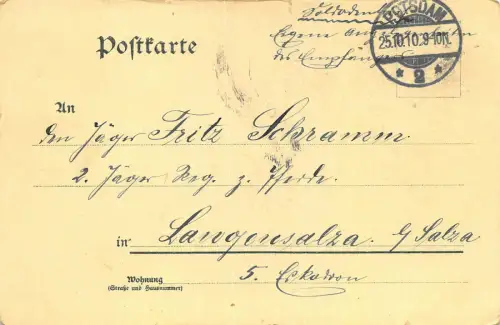 Soldatenbrief
Eigene Angelegenheiten
des Empfängers
POTSDAM
25.10.10.9-10N.
* 2 *
Postkarte
An
den Jäger Fritz Schramm.
2. Jäger Reg. z. Pferde.
in Langensalza. b/ Salza
5. Eskadron
Wohnung
(Straße und Hausnummer)